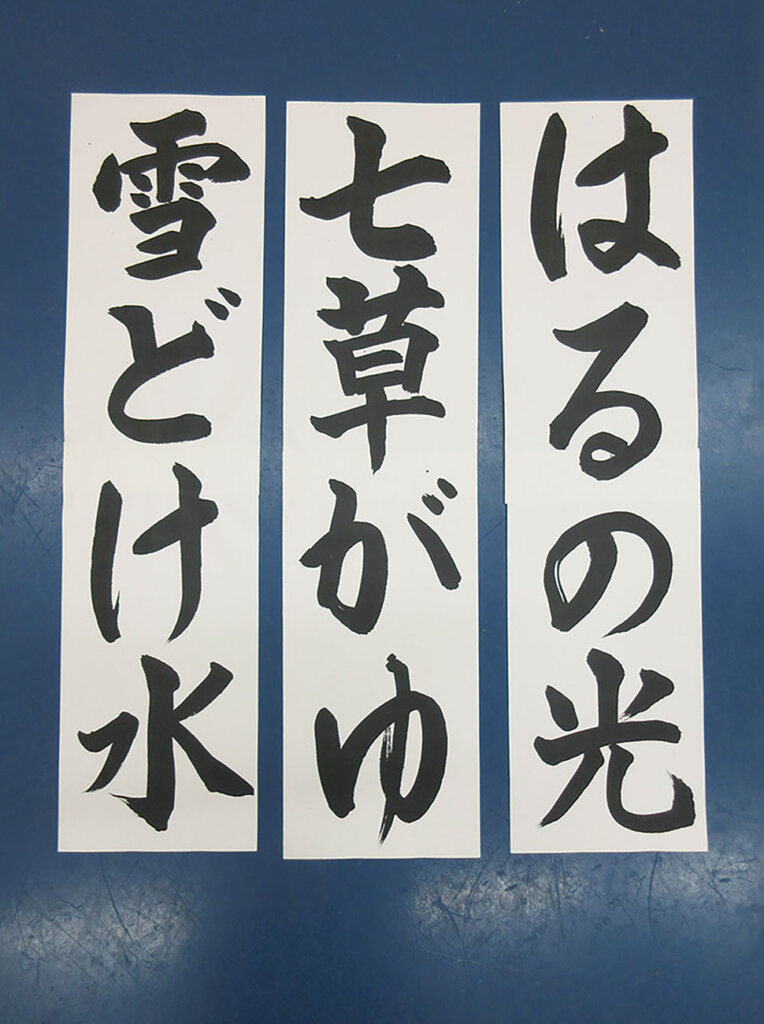 はるの光
七草がゆ
雪どけ水